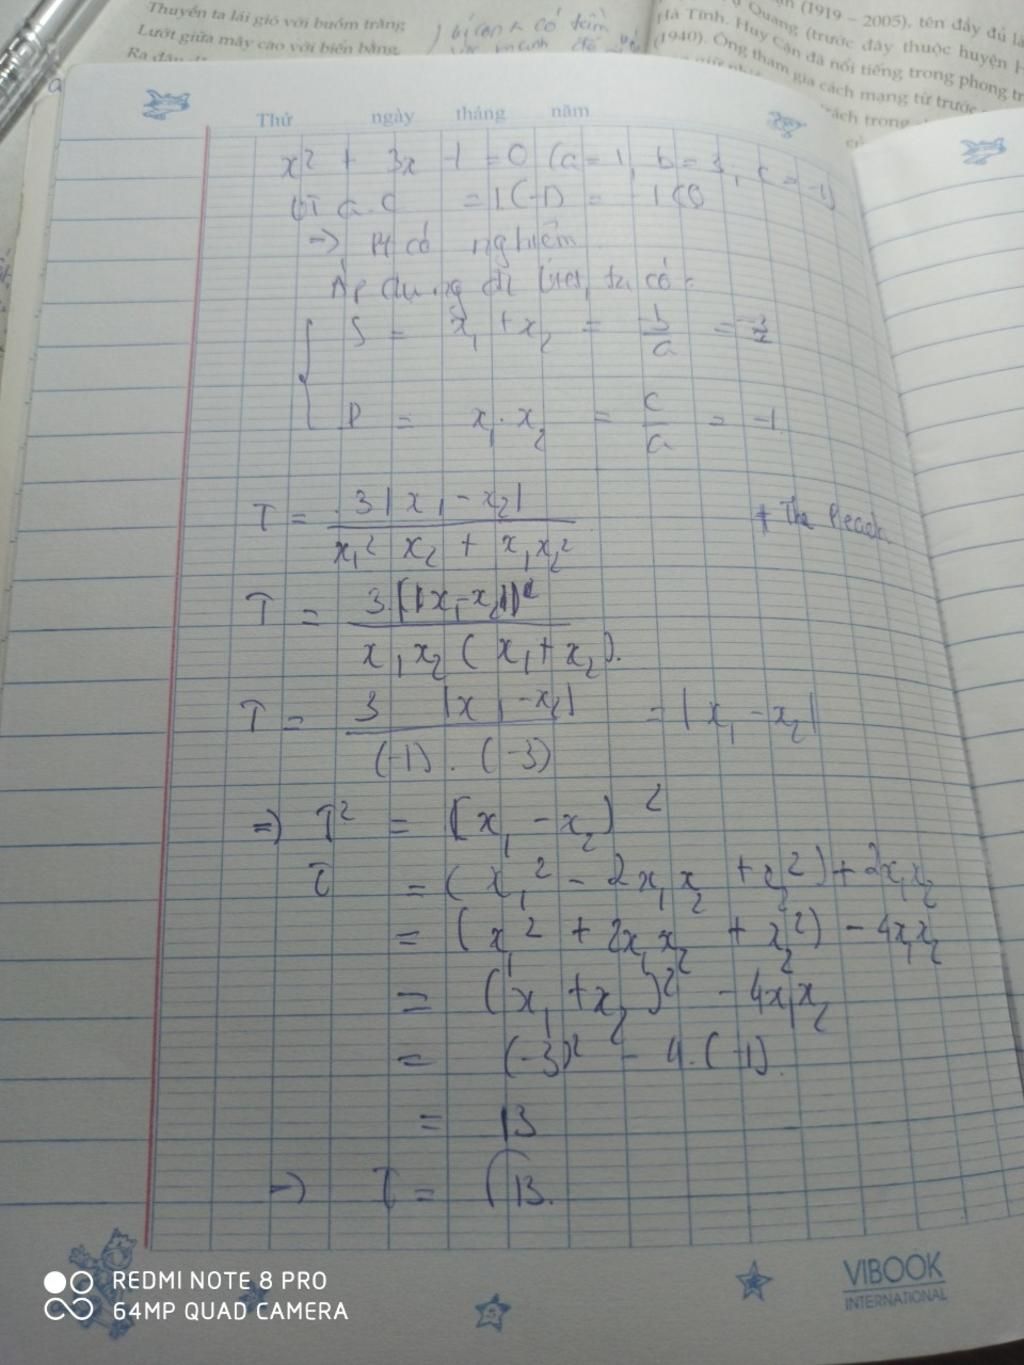 Thuyền ta lái gió với buồm trăng
Lướt giữa mây cao với biển bằng
Ra đậu
(1919 – 2005), tên đầy đủ là
Quang (trước đây thuộc huyện
Hà Tĩnh. Huy Cận đã nổi tiếng trong phong
(1940). Ông tham gia cách mạng từ trước
Thứ ngày tháng năm
x² + 3x - 1 = 0 (a = 1, b = 3, c = -1)
a.c = 1(-1) = -1 < 0
=> Pt có nghiệm
Áp dụng đl Viet, ta có:
S = x₁ + x₂ = -b/a = -3
P = x₁ . x₂ = c/a = -1
T = 3|x₁ - x₂| / x₁² x₂ + x₁x₂²
T = 3.(|x₁-x₂|) / x₁x₂ (x₁+x₂).
T = 3 |x₁ - x₂| / (-1) . (-3) = |x₁ - x₂|
=> T² = (x₁ - x₂)²
T = (x₁² - 2x₁x₂ + x₂²) + 2x₁x₂
= (x₁² + 2x₁x₂ + x₂²) - 4x₁x₂
= (x₁ + x₂)² - 4x₁x₂
= (-3)² - 4.(-1)
= 13
=> T = √13.
VIBOOK
INTERNATIONAL
REDMI NOTE 8 PRO
64MP QUAD CAMERA